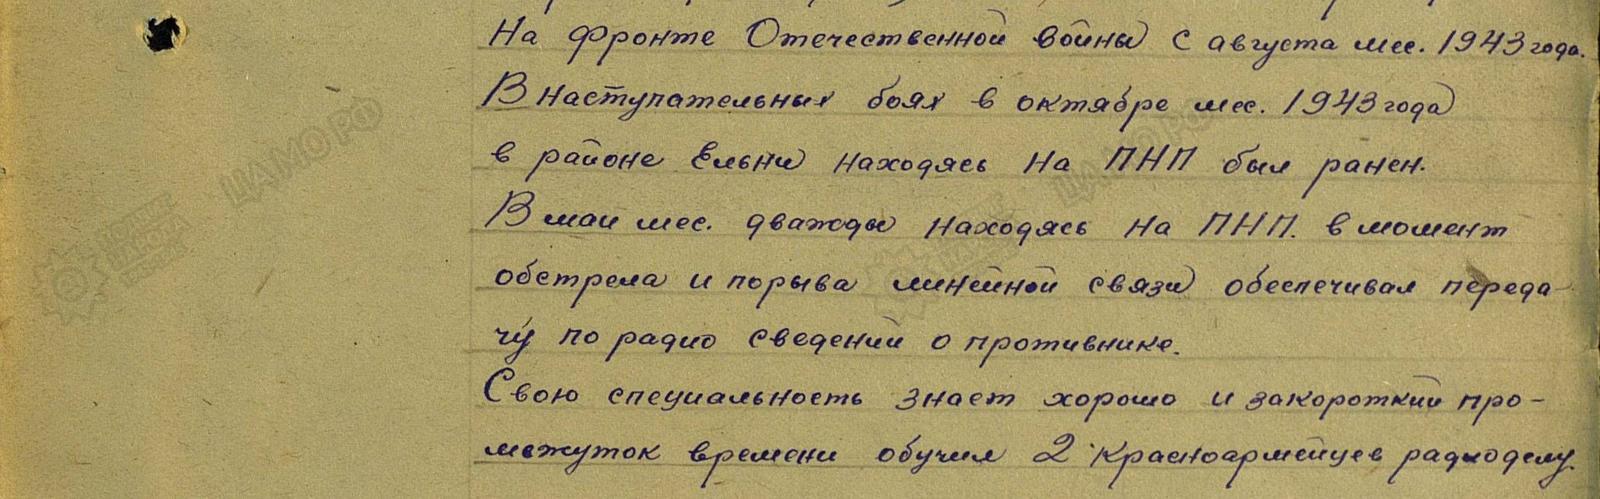 На фронте Отечественной войны с августа мес. 1943 года.
В наступательных боях в октябре мес. 1943 года
в районе Ельни находясь на ПНП был ранен.
В май мес. дважды находясь на ПНП. в момент
обстрела и порыва линейной связи обеспечивал переда-
чу по радио сведений о противнике.
Свою специальность знает хорошо и закороткий про-
межуток времени обучил 2 красноармейцев радиоделу.
ЦАМО РФ
ЦАМО РФ